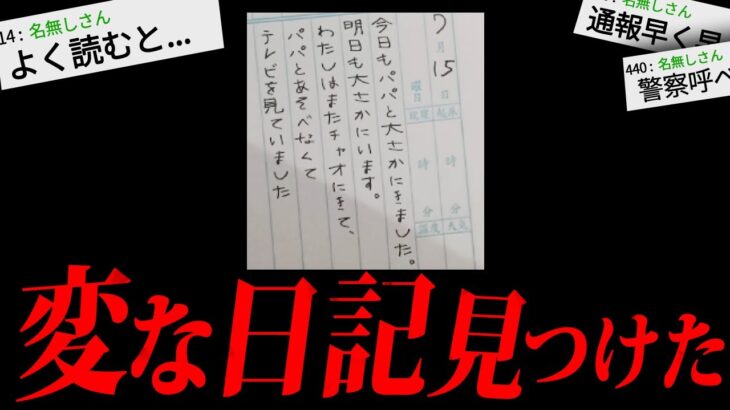 14：名無しさん
よく読むと...
名無しさん
通報早く
440：名無しさん
警察呼べ
7月
15日
曜日
就寝 起床
時 時
分 分
温度 天気
今日もパパと大さかにきました。
明日も大さかにいます。
わたしはまたチャオにきて、
パパとあそべなくて
テレビを見ていました
変な日記見つけた